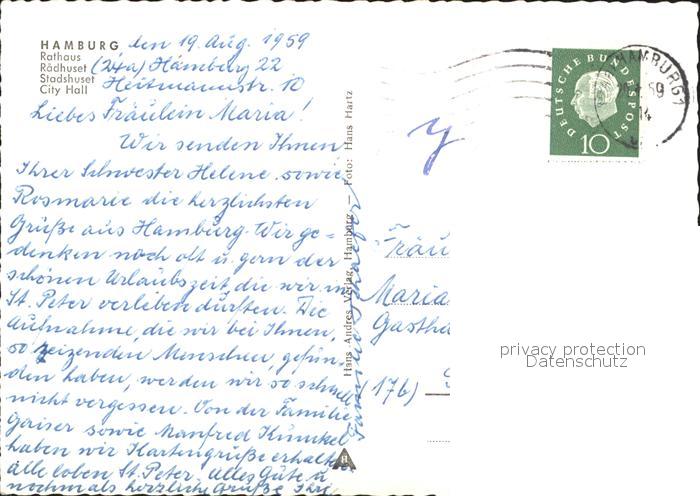 HAMBURG
Rathaus
Rådhuset
Stadshuset
City Hall
den 19. Aug. 1959
(24a) Hamburg 22
Heitmannstr. 10
Liebes Fräulein Maria!
Wir senden Ihnen
Ihrer Schwester Helene sowie
Rosmarie die herzlichsten
Grüße aus Hamburg. Wir ge-
denken noch oft u. gern der
schönen Urlaubszeit, die wir in
St. Peter verleben durften. Die
Aufnahme, die wir bei Ihnen,
so reizenden Menschen, gefun-
den haben, werden wir so schnell
nicht vergessen. Von der Familie
Gaiser sowie Manfred
haben wir Kartengrüße erhalten
alle loben St. Peter. Alles Gute u
nochmals herzliche Grüße Ihre
Familie
Hans Andres Verlag, Hamburg – Foto: Hans Hartz
DEUTSCHE BUNDESPOST
10
HAMBURG 1
59
14
Fräu
Maria
Gastha
(17b)
privacy protection
Datenschutz